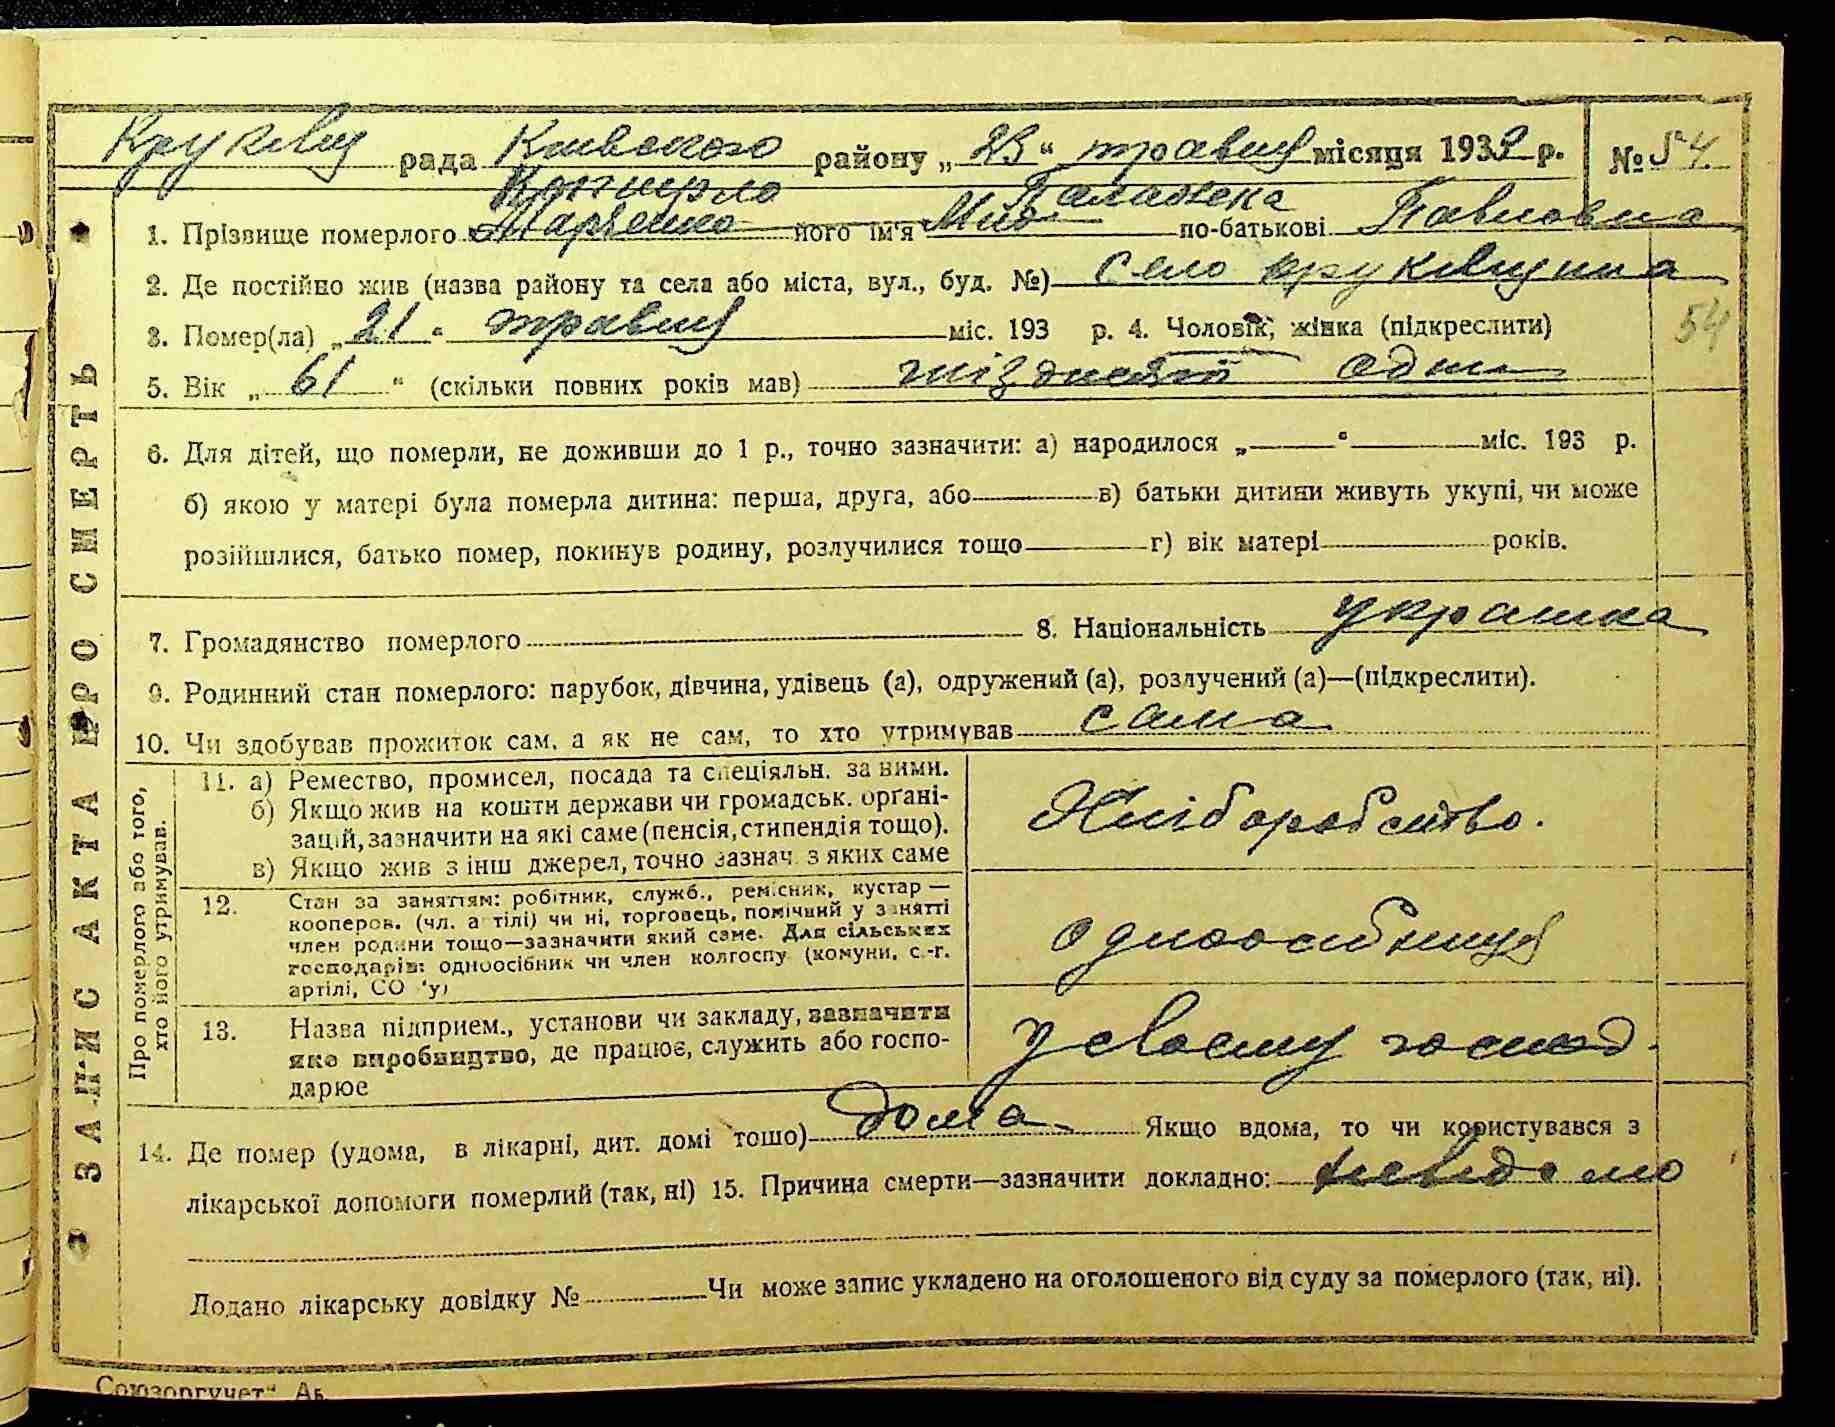 рада Київського району „ 23 “ травня місяця 1933 р. № 54.
Палажка
1. Прізвище померлого Марченко його ім'я по-батькові Павловна
2. Де постійно жив (назва району та села або міста, вул., буд. №) село Круківщина
3. Помер(ла) „ 21 “ травня міс. 193 р. 4. Чоловік, жінка (підкреслити)
54
5. Вік „ 61 “ (скільки повних років мав) шіздисят один
6. Для дітей, що померли, не доживши до 1 р., точно зазначити: а) народилося „ “ міс. 193 р.
б) якою у матері була померла дитина: перша, друга, або в) батьки дитини живуть укупі, чи може
розійшлися, батько помер, покинув родину, розлучилися тощо г) вік матері років.
7. Громадянство померлого 8. Національність украинка
9. Родинний стан померлого: парубок, дівчина, удівець (а), одружений (а), розлучений (а)—(підкреслити).
10. Чи здобував прожиток сам, а як не сам, то хто утримував сама
ЗАПИС АКТА ПРО СМЕРТЬ
Про померлого або того,
хто його утримував.
11. а) Ремество, промисел, посада та спеціяльн. за ними.
б) Якщо жив на кошти держави чи громадськ. органі-
зацій, зазначити на які саме (пенсія, стипендія тощо).
в) Якщо жив з інш джерел, точно зазнач. з яких саме
Хліборобство.
12. Стан за заняттям: робітник, служб., ремісник, кустар —
кооперов. (чл. артілі) чи ні, торговець, помічний у занятті
член родини тощо—зазначити який саме. Для сільських
господарів: одноосібник чи член колгоспу (комуни, с.-г.
артілі, СО 'у)
одноосібниця
13. Назва підприєм., установи чи закладу, зазначити
яке виробництво, де працює, служить або госпо-
дарює
у своєму господ.
14. Де помер (удома, в лікарні, дит. домі тощо) дома Якщо вдома, то чи користувався з
лікарської допомоги померлий (так, ні) 15. Причина смерти—зазначити докладно: невідомо
Додано лікарську довідку № Чи може запис укладено на оголошеного від суду за померлого (так, ні).
„Союзоргучет“